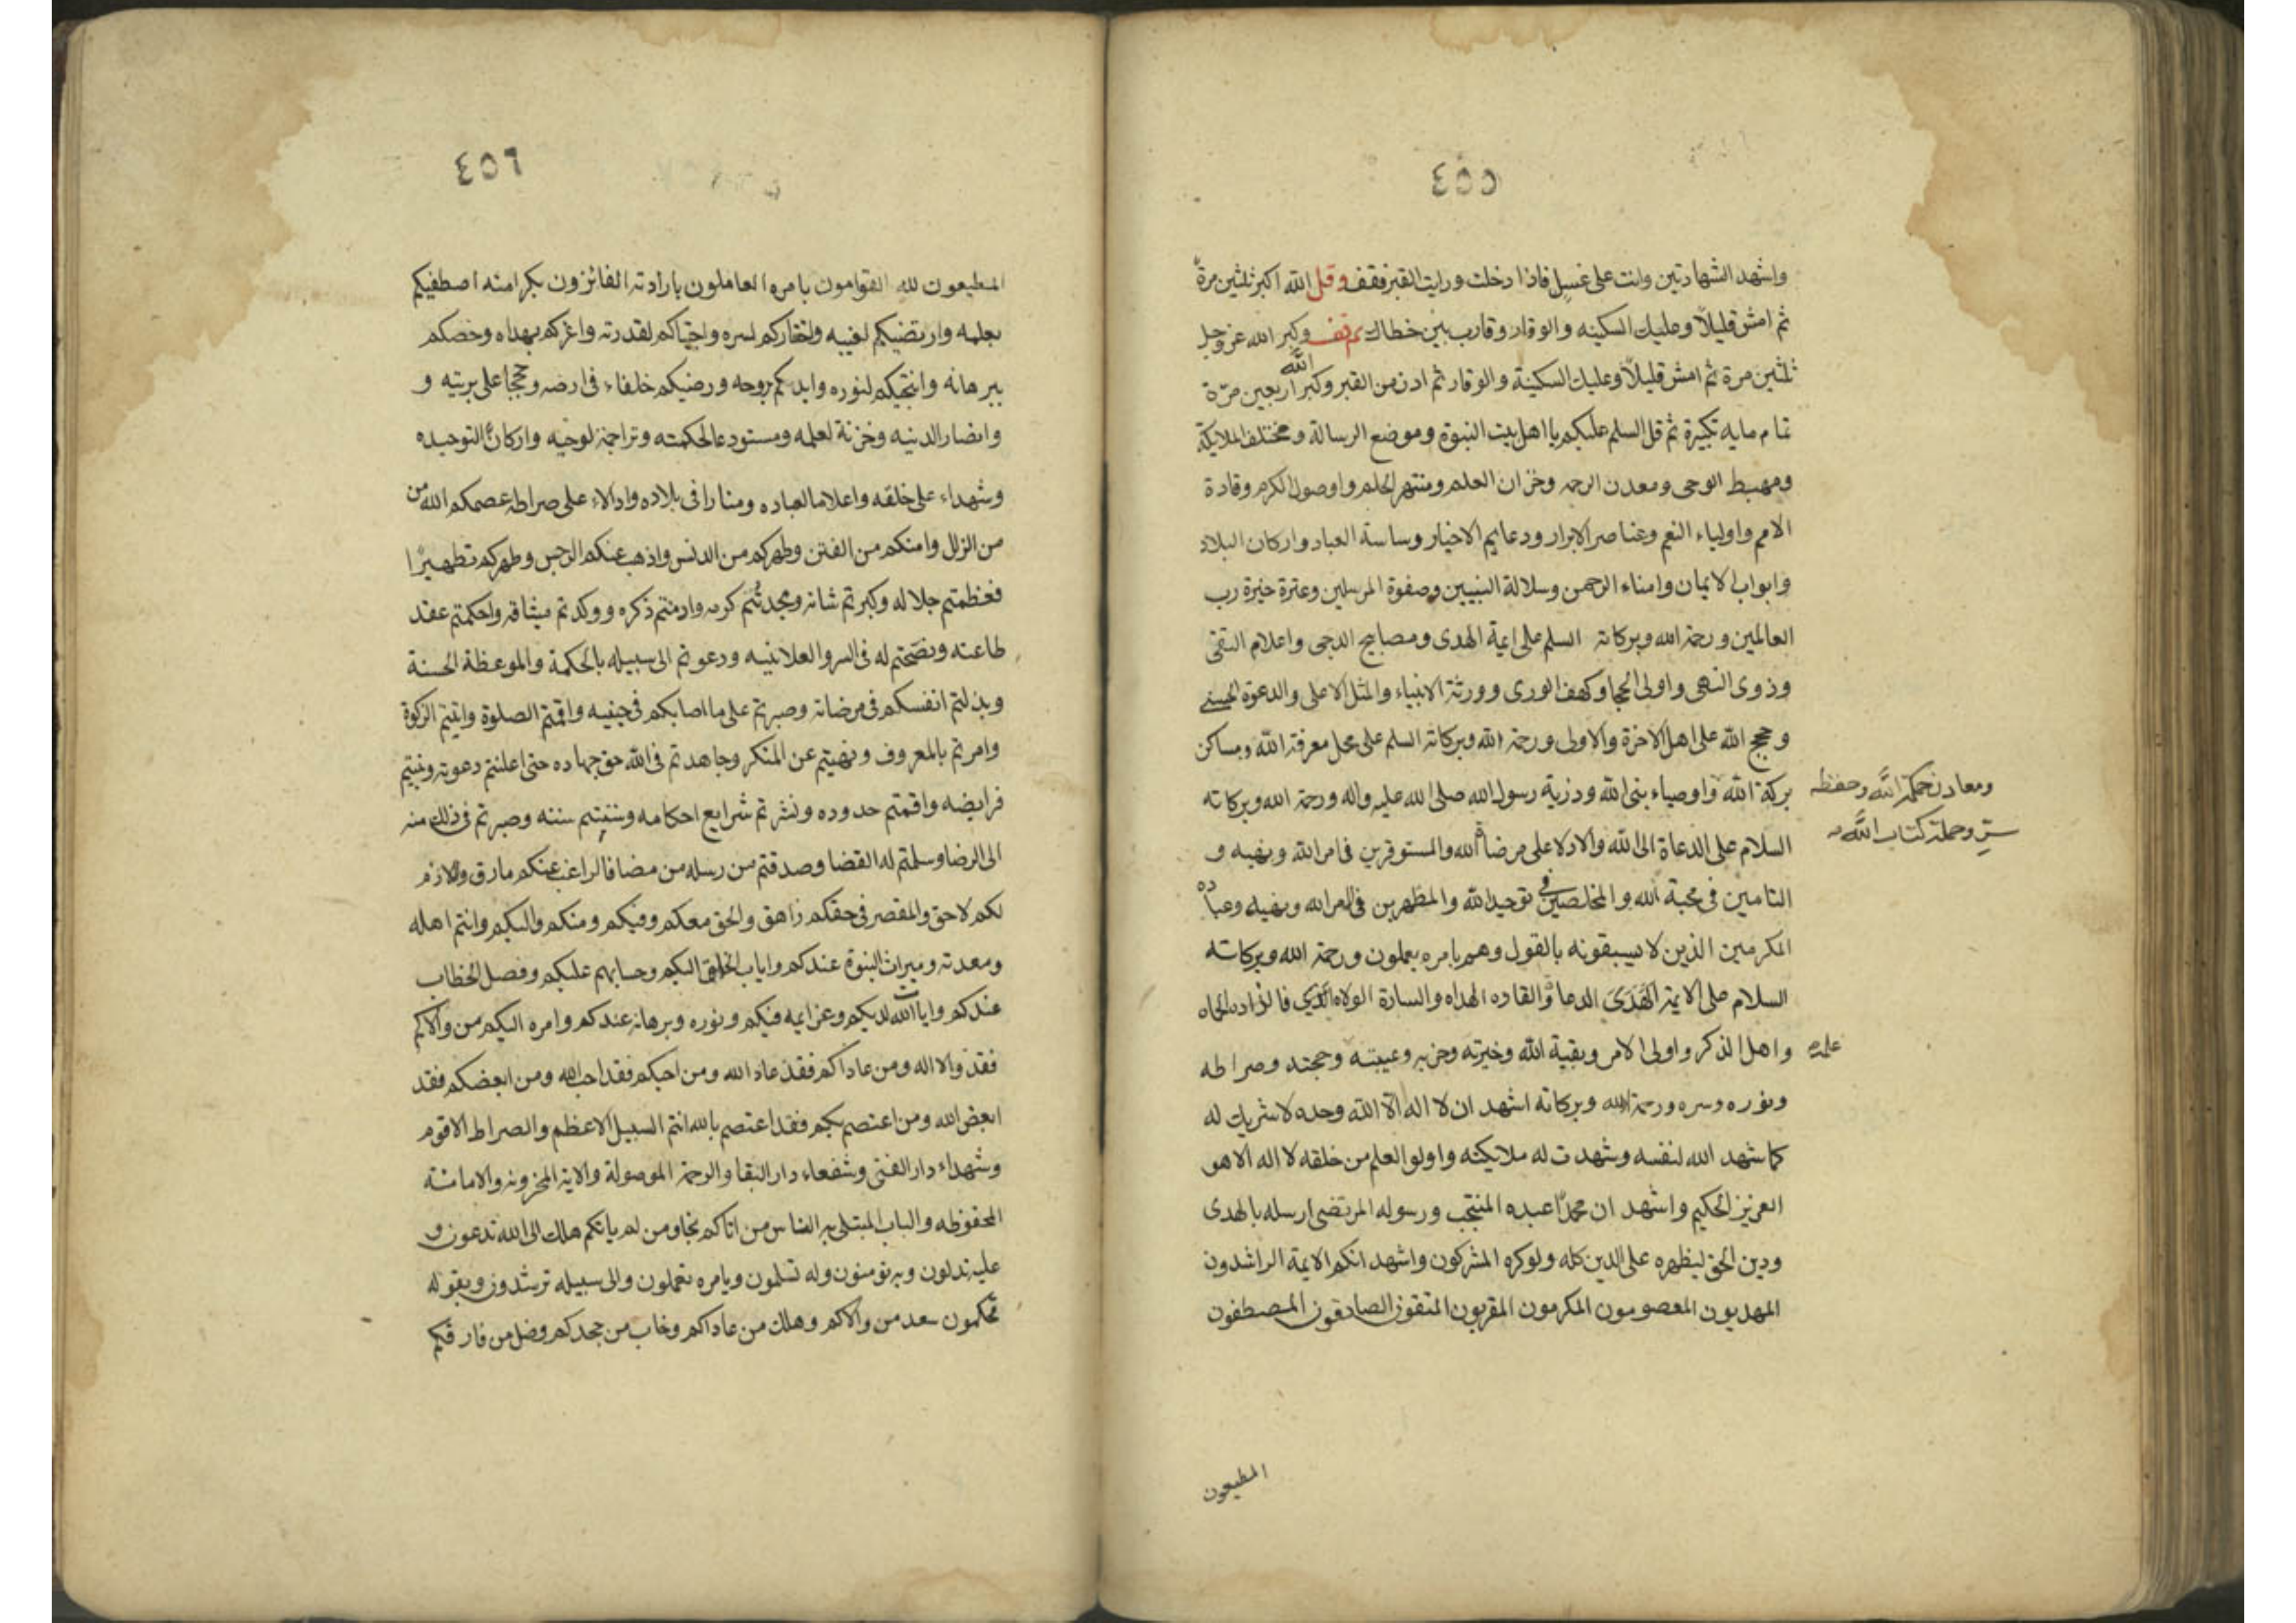 ٤٥٥
واشهد الشهادتين وانت على غسل فاذا دخلت ورايت القبر فقف وقل الله اكبر ثلثين مرة
ثم امش قليلاً وعليك السكينه والوقار وقارب بين خطاك ثم قف وكبر الله عز وجل
ثلثين مرة ثم امش قليلاً وعليك السكينة والوقار ثم ادن من القبر وكبر الله اربعين مرّة
تمام مايه تكبيرة ثم قل السلم عليكم يا اهل بيت النبوة وموضع الرسالة ومختلف الملايكة
ومهبط الوحى ومعدن الرحمه وخزان العلم ومنتهى الحلم واوصول الكرم وقادة
الامم واولياء النعم وعناصر الابرار ودعايم الاخيار وساسة العباد واركان البلاد
وابواب الايمان وامناء الرحمن وسلالة النبيين وصفوة المرسلين وعترة خيرة رب
العالمين ورحمة الله وبركاته السلم على ايمة الهدى ومصابيح الدجى واعلام التقى
وذوى النهى واولى الحجا وكهف الورى وورثة الانبياء والمثل الاعلى والدعوة الحسنى
وحجج الله على اهل الاخرة والاولى ورحمة الله وبركاته السلم على محل معرفة الله ومساكن
بركة الله واوصياء نبى الله وذرية رسول الله صلى الله عليه واله ورحمة الله وبركاته
ومعادن حكمة الله وحفظه
سرّ وحملة كتاب الله
السلام على الدعاة الى الله والادلاء على مرضات الله والمستوفرين فى امر الله ونهيه و
التامين فى محبة الله والمخلصين فى توحيد الله والمظهرين فى امر الله ونهيه وعباده
المكرمين الذين لا يسبقونه بالقول وهم بامره يعملون ورحمة الله وبركاته
السلام على الايمة الهدى الدعاة والقاده الهداه والسارة الولاه
واهل الذكر واولى الامر وبقية الله وخيرته وحزبه وعيبته وحجته وصراطه
علمه
ونوره وسره ورحمة الله وبركاته اشهد ان لا اله الا الله وحده لا شريك له
كما شهد الله لنفسه وشهدت له ملايكته واولو العلم من خلقه لا اله الا هو
العزيز الحكيم واشهد ان محمدًا عبده المنتجب ورسوله المرتضى ارسله بالهدى
ودين الحق ليظهره على الدين كله ولو كره المشركون واشهد انكم الايمة الراشدون
المهديون المعصومون المكرمون المقربون المتقون الصادقون المصطفون
المطيعون
٤٥٦
المطيعون لله القوامون بامره العاملون بارادته الفائزون بكرامته اصطفيكم
بعلمه وارتضيكم لغيبه واختاركم لسره واجتباكم لقدرته واعزكم بهداه وخصكم
ببرهانه وانتجبكم لنوره وايدكم بروحه ورضيكم خلفاء فى ارضه وحججا على بريته و
وانصارا لدينه وخزنة لعلمه ومستودعا لحكمته وتراجمة لوحيه واركانًا لتوحيده
وشهداء على خلقه واعلاما لعباده ومنارا فى بلاده وادلاء على صراطه عصمكم الله من
من الزلل وامنكم من الفتن وطهركم من الدنس واذهب عنكم الرجس وطهركم تطهيرًا
فعظمتم جلاله وكبرتم شانه ومجدتم كرمه وادمنتم ذكره ووكدتم ميثاقه واحكمتم عقد
طاعته ونصحتم له فى السر والعلانيه ودعوتم الى سبيله بالحكمة والموعظة الحسنة
وبذلتم انفسكم فى مرضاته وصبرتم على ما اصابكم فى جنبه واقمتم الصلوة واتيتم الزكوة
وامرتم بالمعروف ونهيتم عن المنكر وجاهدتم فى الله حق جهاده حتى اعلنتم دعوته وبينتم
فرايضه واقمتم حدوده ونشرتم شرايع احكامه وسننتم سنته وصبرتم فى ذلك منه
الى الرضا وسلمتم له القضا وصدقتم من رسله من مضا فالراغب عنكم مارق واللازم
لكم لاحق والمقصر فى حقكم زاهق والحق معكم وفيكم ومنكم واليكم وانتم اهله
ومعدنه وميراث النبوة عندكم واياب الخلق اليكم وحسابهم عليكم وفصل الخطاب
عندكم وايات الله لديكم وعزايمه فيكم ونوره وبرهانه عندكم وامره اليكم من والاكم
فقد والا اله ومن عاداكم فقد عاد الله ومن احبكم فقد احب الله ومن ابغضكم فقد
ابغض الله ومن اعتصم بكم فقد اعتصم بالله انتم السبيل الاعظم والصراط الاقوم
وشهداء دار الفنى وشفعاء دار البقا والرحمة الموصولة والاية المخزونه والامانة
المحفوظه والباب المبتلى به الناس من اتاكم نجا ومن لم ياتكم هلك الى الله تدعون و
عليه تدلون وبه تومنون وله تسلمون وبامره تعملون والى سبيله ترشدون وبقوله
تحكمون سعد من والاكم وهلك من عاداكم وخاب من جحدكم وضل من فارقكم